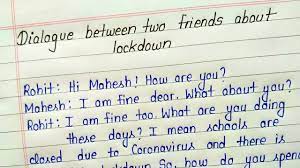 Dialogue between two friends about
lockdown
Rohit: Hi Mahesh! How are you?
Mahesh: I am fine dear. What about you?
Rohit: I am fine too. What are you doing
these days? I mean schools are
closed due to Coronavirus and there is
lockdown So, how do you spend